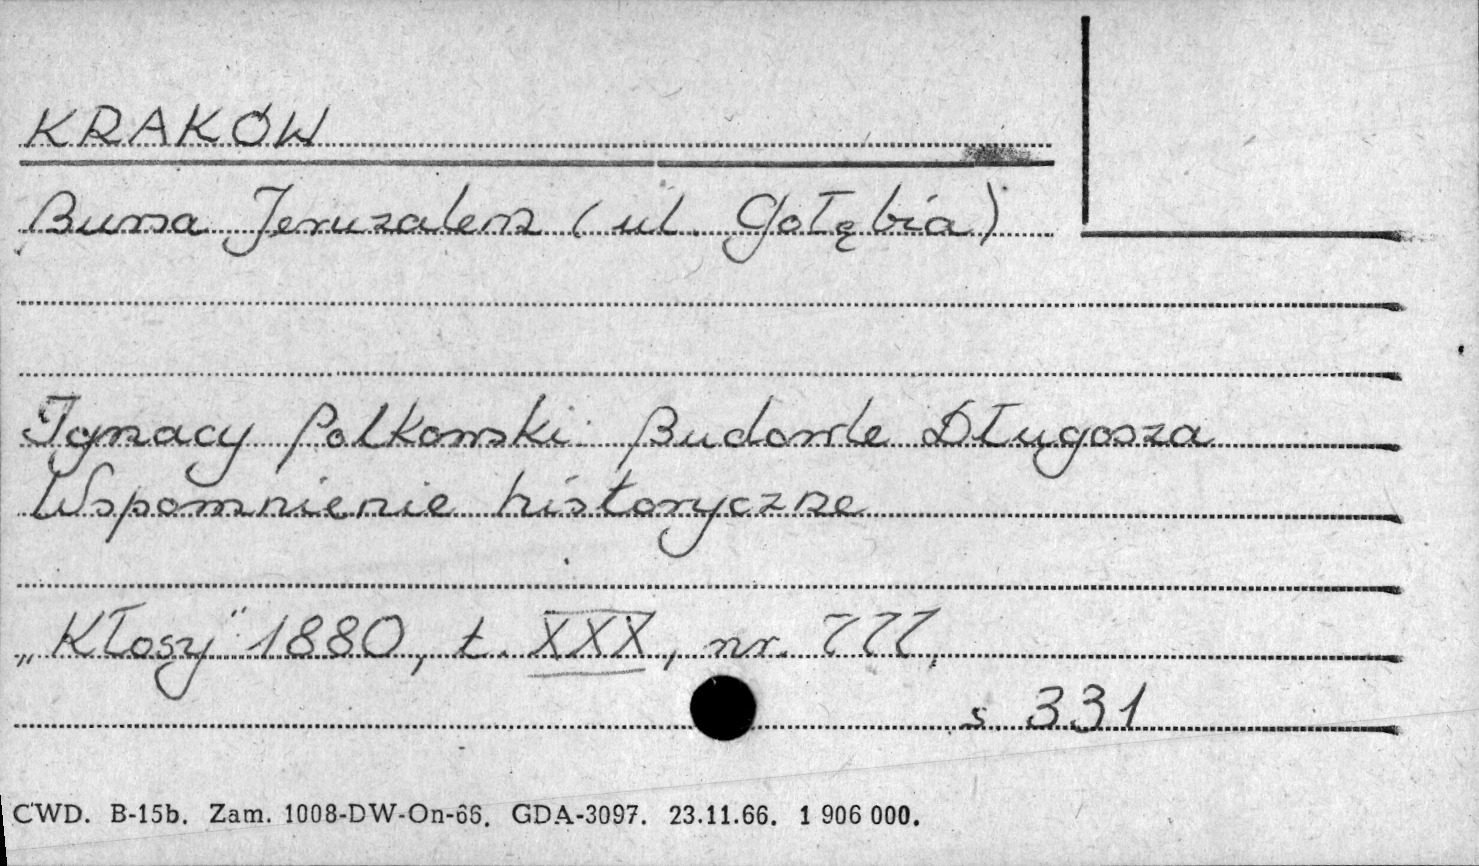 KRAKÓW
Bursa Jeruzalem (ul. Gołębia)
Ignacy Polkowski: Budowle Długosza
Wspomnienie historyczne
„Kłosy" 1880, t. XXX, nr. 777,
s. 331
CWD. B-15b. Zam. 1008-DW-On-66. GDA-3097. 23.11.66. 1 906 000.